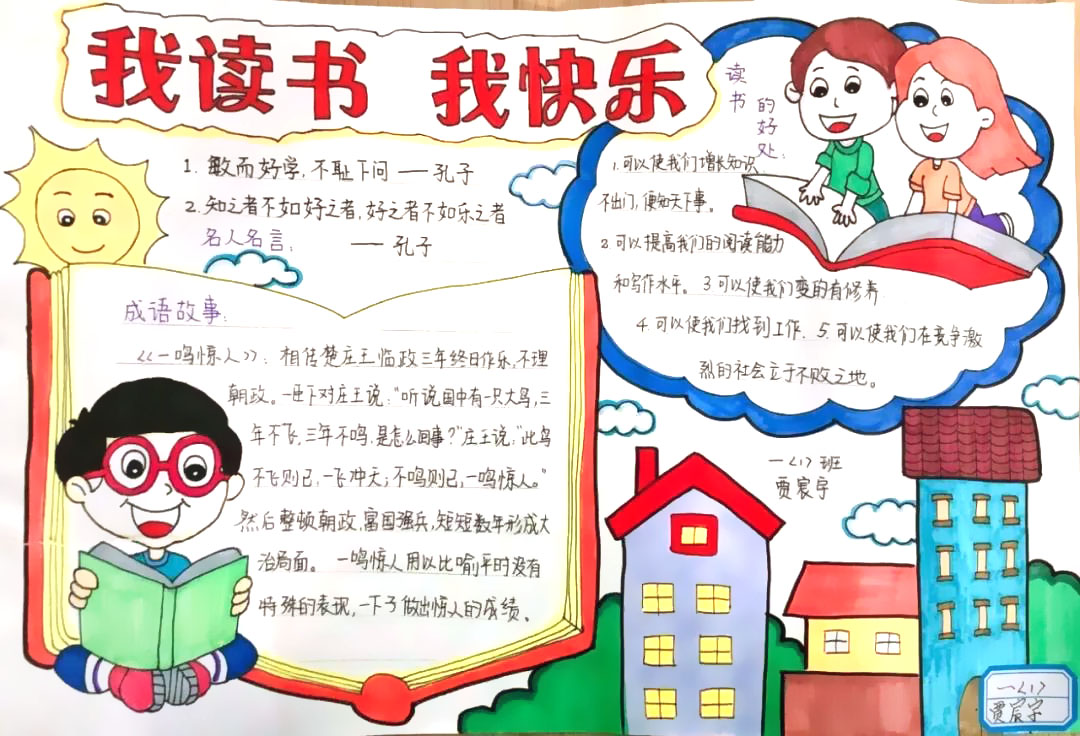 我读书 我快乐
1. 敏而好学,不耻下问 ——孔子
2. 知之者不如好之者,好之者不如乐之者
名人名言: —— 孔子
成语故事:
《一鸣惊人》: 相传楚庄王临政三年终日作乐,不理
朝政。一臣下对庄王说:"听说国中有一只大鸟,三
年不飞,三年不鸣,是怎么回事?"庄王说:"此鸟
不飞则已,一飞冲天;不鸣则已,一鸣惊人。"
然后整顿朝政,富国强兵,短短数年形成大
治局面。 一鸣惊人用以比喻平时没有
特殊的表现,一下子做出惊人的成绩。
读书的好处:
1.可以使我们增长知识
不出门,便知天下事。
2.可以提高我们的阅读能力
和写作水平。3可以使我们变的有修养.
4.可以使我们找到工作.5.可以使我们在竞争激
烈的社会立于不败之地。
一<1>班
贾宸宇
一<1>
贾宸宇